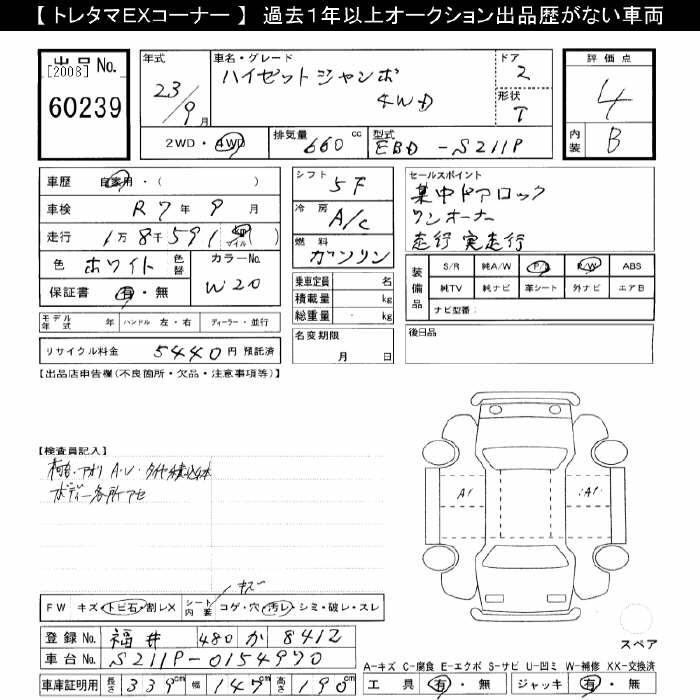 【 トレタマEXコーナー 】 過去1年以上オークション出品歴がない車両
出品 No.
[2008]
60239
年式
23/9月
車名・グレード
ハイゼットジャンボ
4WD
ドア
2
形状
T
評価点
4
内装
B
2WD・4WD
排気量 660 cc
型式 EBD-S211P
車歴 自家用・( )
車検 R7年9月
走行 1万8千591 km マイル ( )
色 ホワイト 色替
カラーNo. W20
保証書 有・無
シフト 5F
冷房 A/C
燃料 ガソリン
乗車定員 名
積載量 kg
総重量 kg
名変期限
月 日
セールスポイント
集中ドアロック
ワンオーナー
走行実走行
装備品
S/R 純A/W P/S P/W ABS
純TV 純ナビ 革シート 外ナビ エアB
ナビ型番:
モデル年式 年 ハンドル 左・右 ディーラー・並行
後日品
リサイクル料金 5440円 預託済
【出品店申告欄(不良箇所・欠品・注意事項等)】
【検査員記入】
ボディー各所アセ
A1
A1
キズ
FW キズ・トビ石・割レX
シート内装 コゲ・穴・汚レ・シミ・破レ・スレ
スペア
登録 No. 福井 480 か 8412
車台 No. S211P-0154970
車庫証明用 長さ 339cm 幅 147cm 高さ 190cm
A-キズ C-腐食 E-エクボ S-サビ U-凹ミ W-補修 XX-交換済
工具 有・無 ジャッキ 有・無